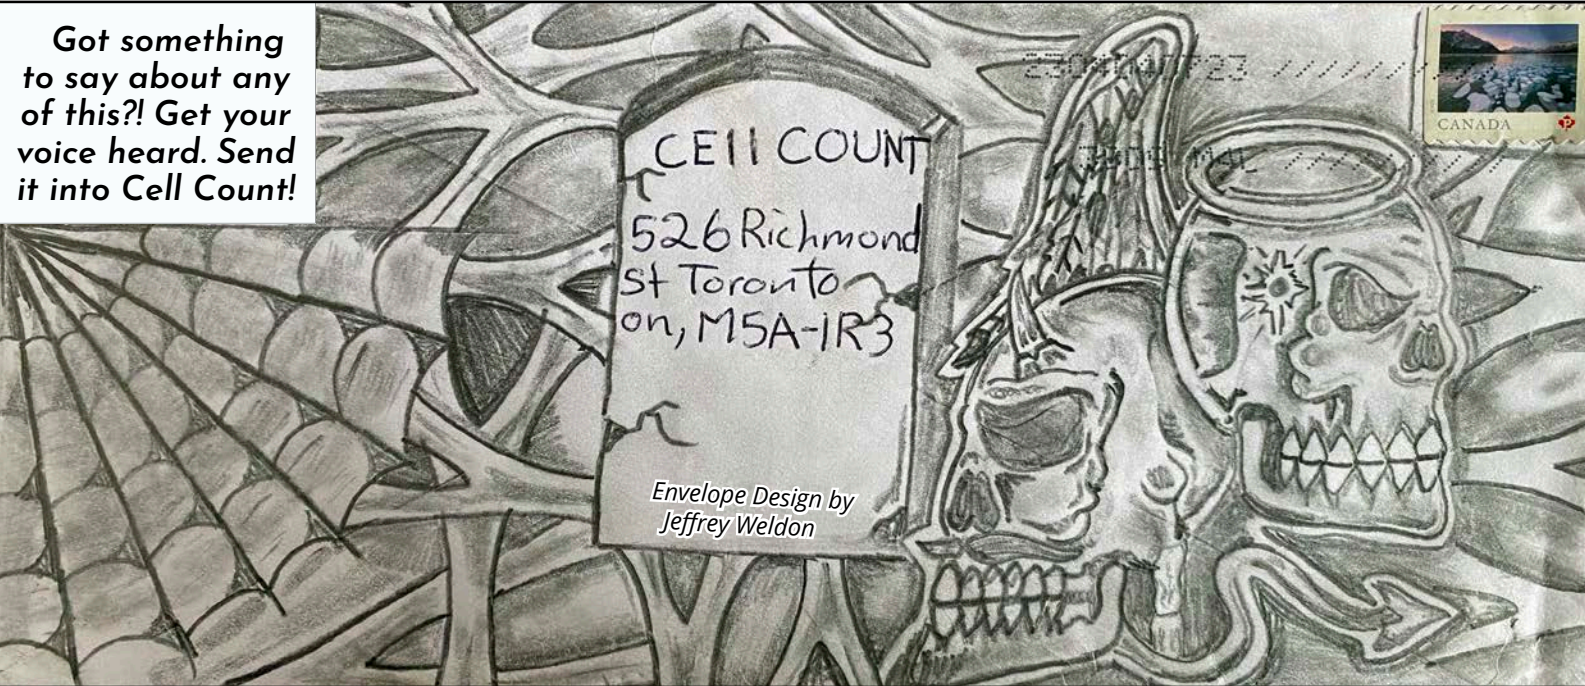 Got something
to say about any
of this?! Get your
voice heard. Send
it into Cell Count!
CEll COUNT
526 Richmond
st Toronto
on, M5A-1R3
Envelope Design by
Jeffrey Weldon
CANADA
P